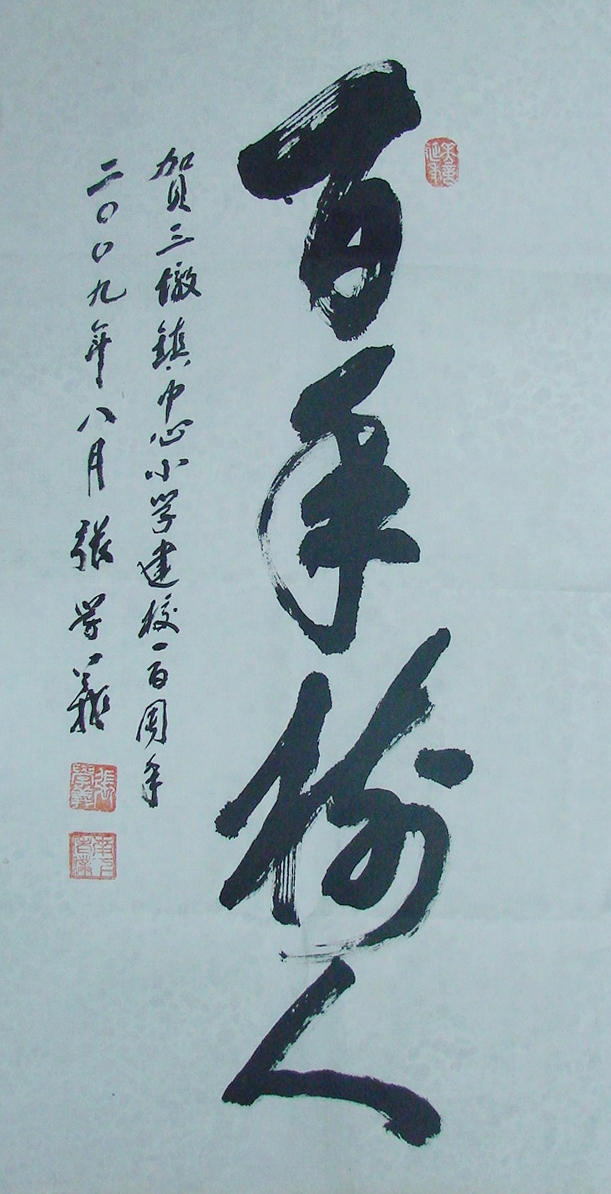 百年树人
贺三墩镇中心小学建校一百周年
二〇〇九年八月 张学义
張學義